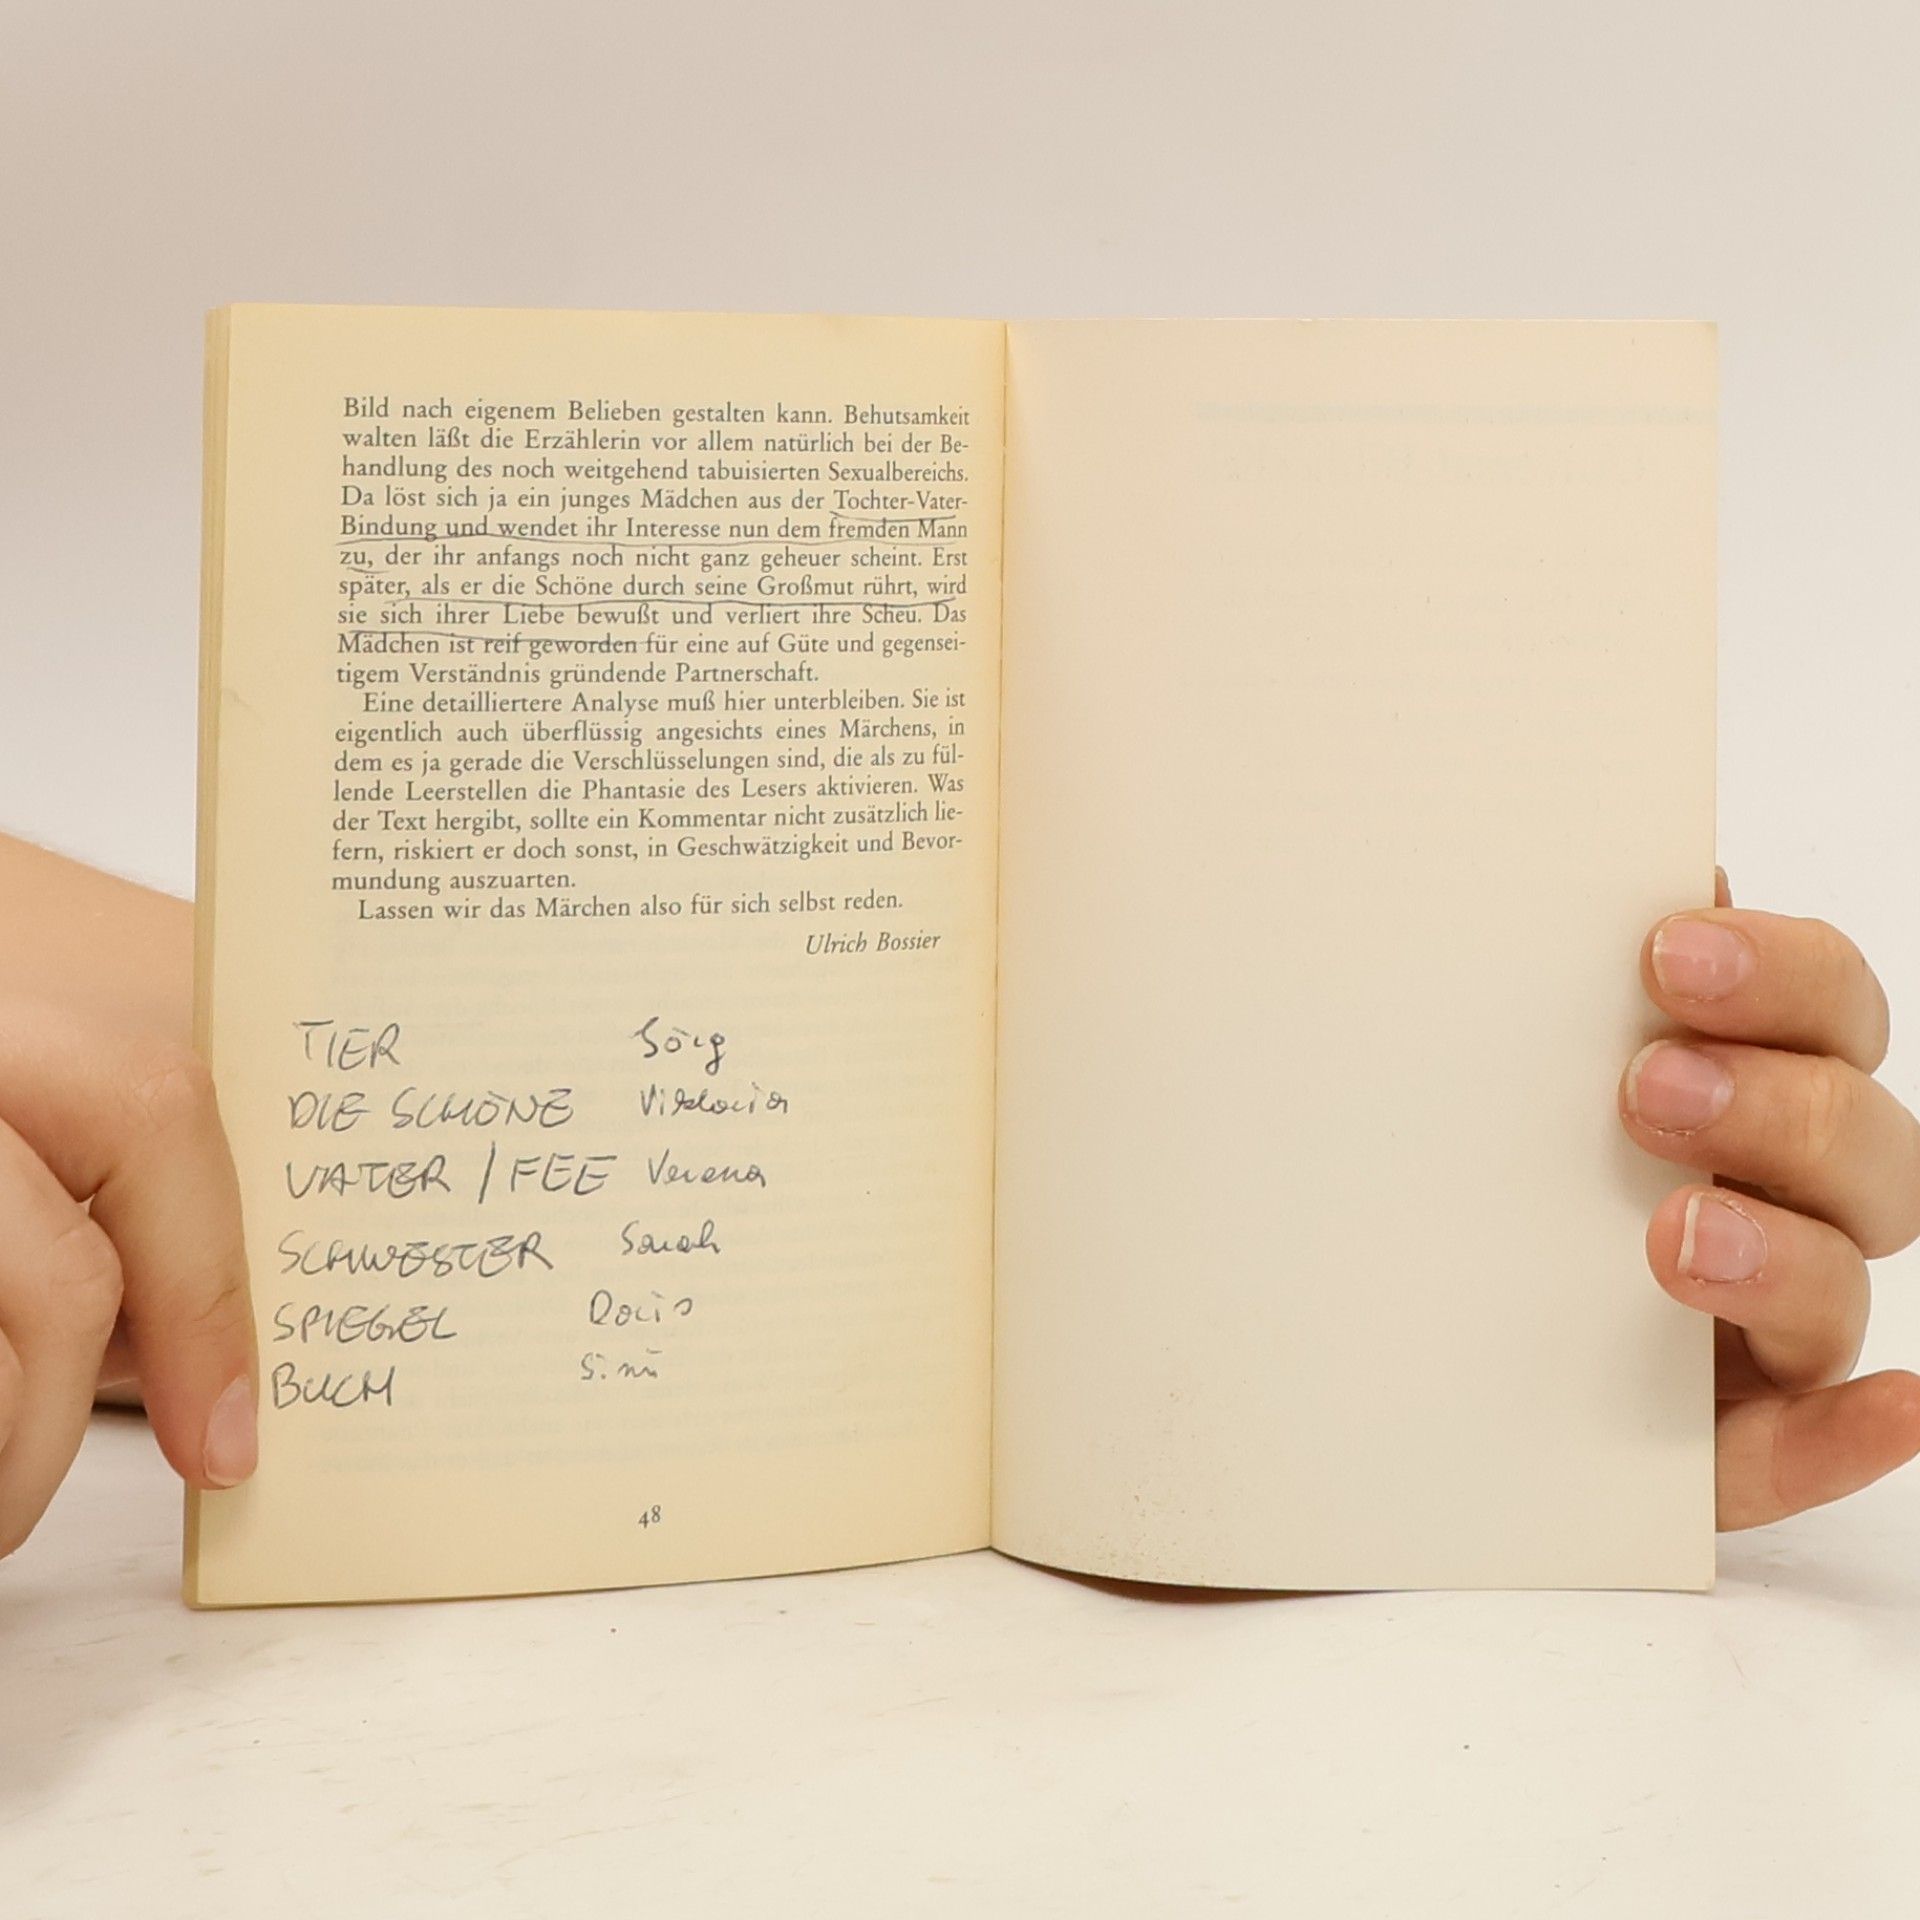 Bild nach eigenem Belieben gestalten kann. Behutsamkeit
walten läßt die Erzählerin vor allem natürlich bei der Be-
handlung des noch weitgehend tabuisierten Sexualbereichs.
Da löst sich ja ein junges Mädchen aus der Tochter-Vater-
Bindung und wendet ihr Interesse nun dem fremden Mann
zu, der ihr anfangs noch nicht ganz geheuer scheint. Erst
später, als er die Schöne durch seine Großmut rührt, wird
sie sich ihrer Liebe bewußt und verliert ihre Scheu. Das
Mädchen ist reif geworden für eine auf Güte und gegensei-
tigem Verständnis gründende Partnerschaft.
Eine detailliertere Analyse muß hier unterbleiben. Sie ist
eigentlich auch überflüssig angesichts eines Märchens, in
dem es ja gerade die Verschlüsselungen sind, die als zu fül-
lende Leerstellen die Phantasie des Lesers aktivieren. Was
der Text hergibt, sollte ein Kommentar nicht zusätzlich lie-
fern, riskiert er doch sonst, in Geschwätzigkeit und Bevor-
mundung auszuarten.
Lassen wir das Märchen also für sich selbst reden.
Ulrich Bossier
TIER Jörg
DIE SCHÖNE Viktoria
VATER / FEE Verena
SCHWESTER Sarah
SPIEGEL Doris
BUCH
48